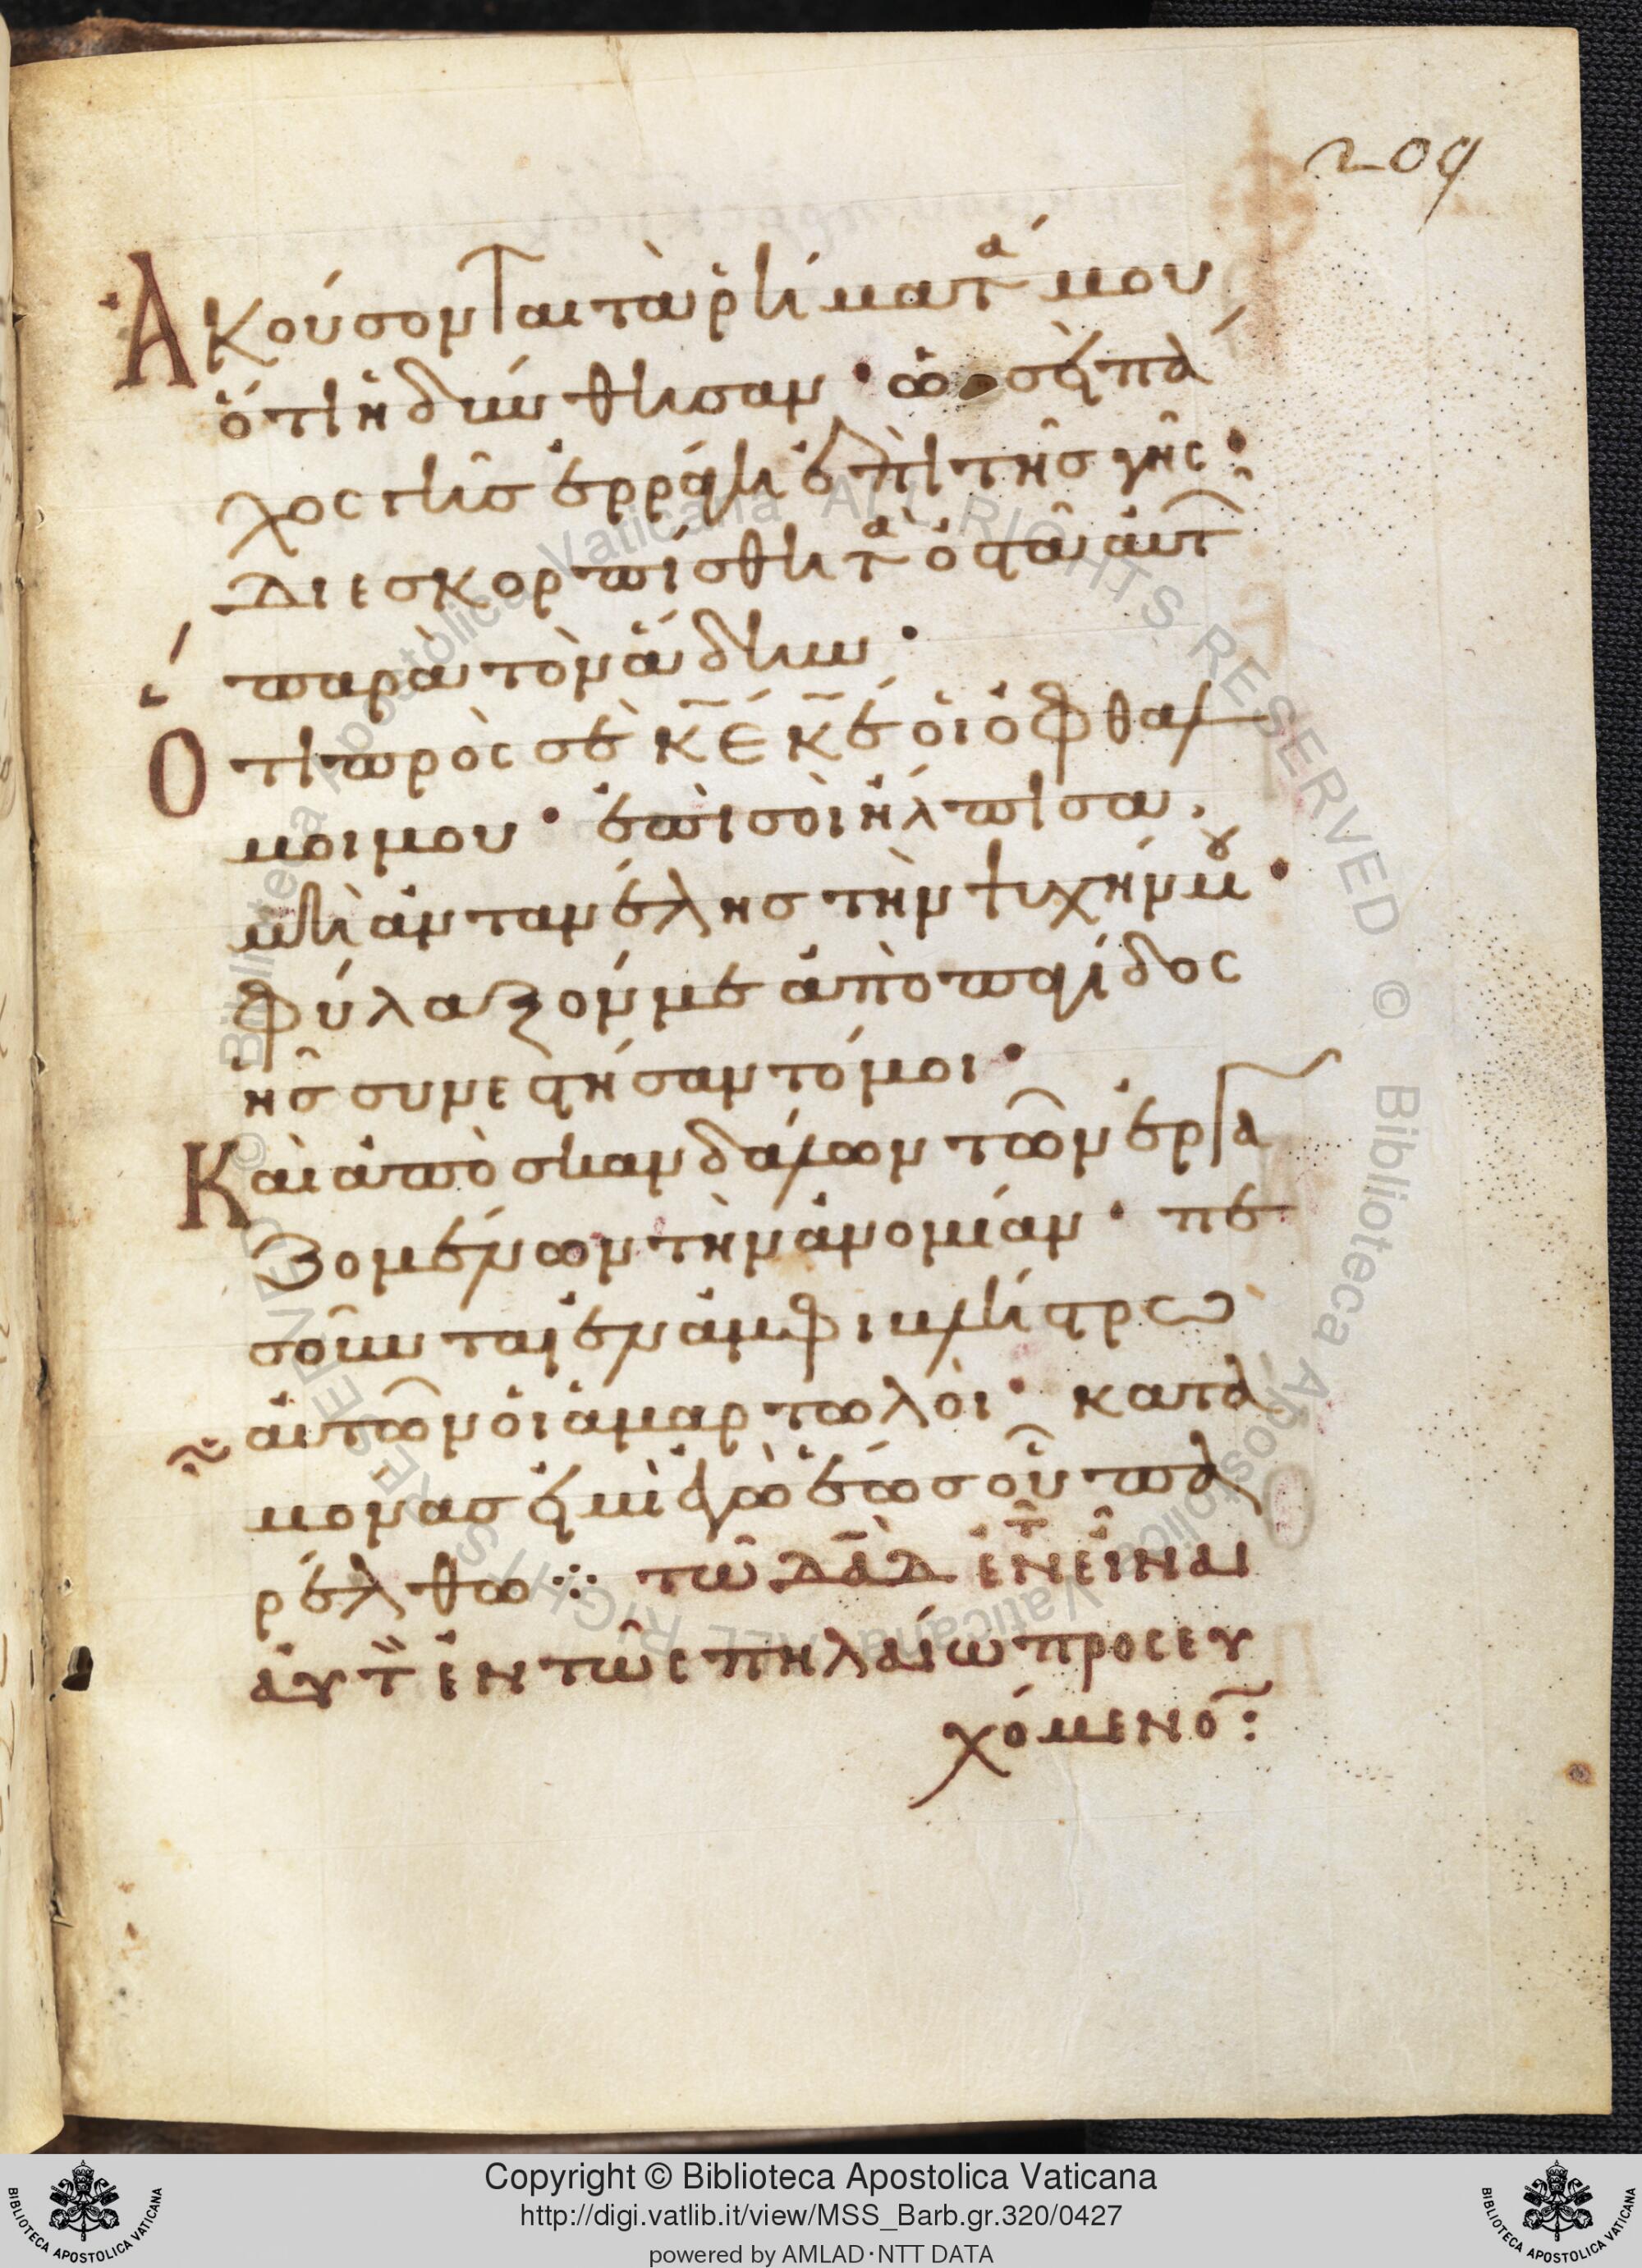 209
Ἀκούσονται τὰ ῥήματά μου
ὅτι ἡδύνθησαν · ὡσεὶ πά
χος γῆς ἐρράγη ἐπὶ τῆς γῆς :
Διεσκορπίσθη τὰ ὀστᾶ αὐτ
παρὰ τὸν ἅδην ·
Ὅτι πρὸς σὲ κ̅ε̅ κ̅ε̅ οἱ ὀφθαλ
μοί μου · ἐπὶ σοὶ ἤλπισα,
μὴ ἀντανέλης τὴν ψυχήν μου ·
φύλαξόν με ἀπὸ παγίδος
ἧς συνεστήσαντό μοι ·
Καὶ ἀπὸ σκανδάλων τῶν ἐργα
ζομένων τὴν ἀνομίαν · πε
σοῦνται ἐν ἀμφιβλήστρω
αὐτῶν οἱ ἁμαρτωλοὶ · κατὰ
μόνας εἰμὶ ἐγὼ ἕως οὗ πα
ρέλθω ⁘ τῶ δ̅α̅δ̅ ἐν τ εἶναι
αὐτ ἐν τῶ σπηλαίω προσευ
χόμενος :
Copyright © Biblioteca Apostolica Vaticana
http://digi.vatlib.it/view/MSS_Barb.gr.320/0427
powered by AMLAD·NTT DATA
BIBLIOTECA APOSTOLICA VATICANA
BIBLIOTECA APOSTOLICA VATICANA
© Biblioteca Apostolica Vaticana ALL RIGHTS RESERVED © Biblioteca Apostolica Vaticana ALL RIGHTS RESERVED